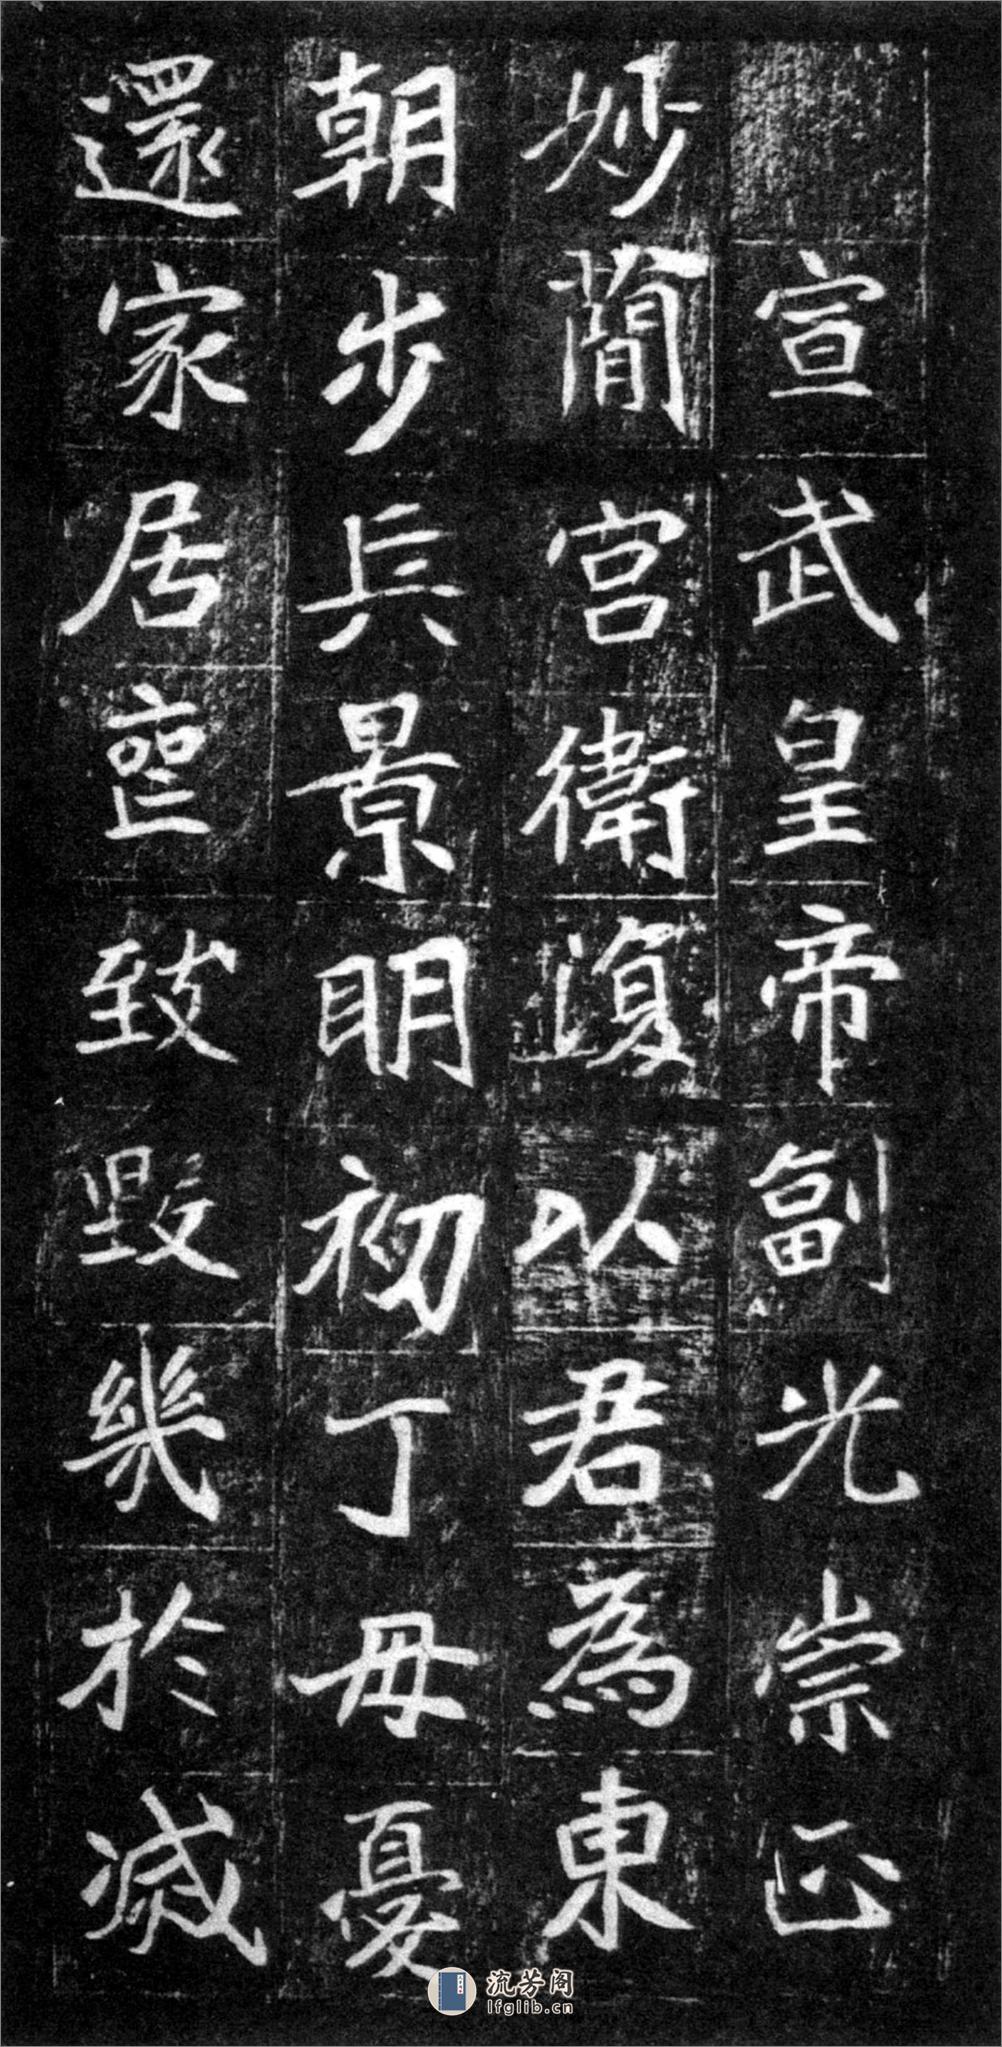 宣武皇帝副光崇正
妙簡宮衛復以君為東
朝步兵景明初丁母憂
還家居喪致毀幾於滅
流芳阁
lfglib.cn